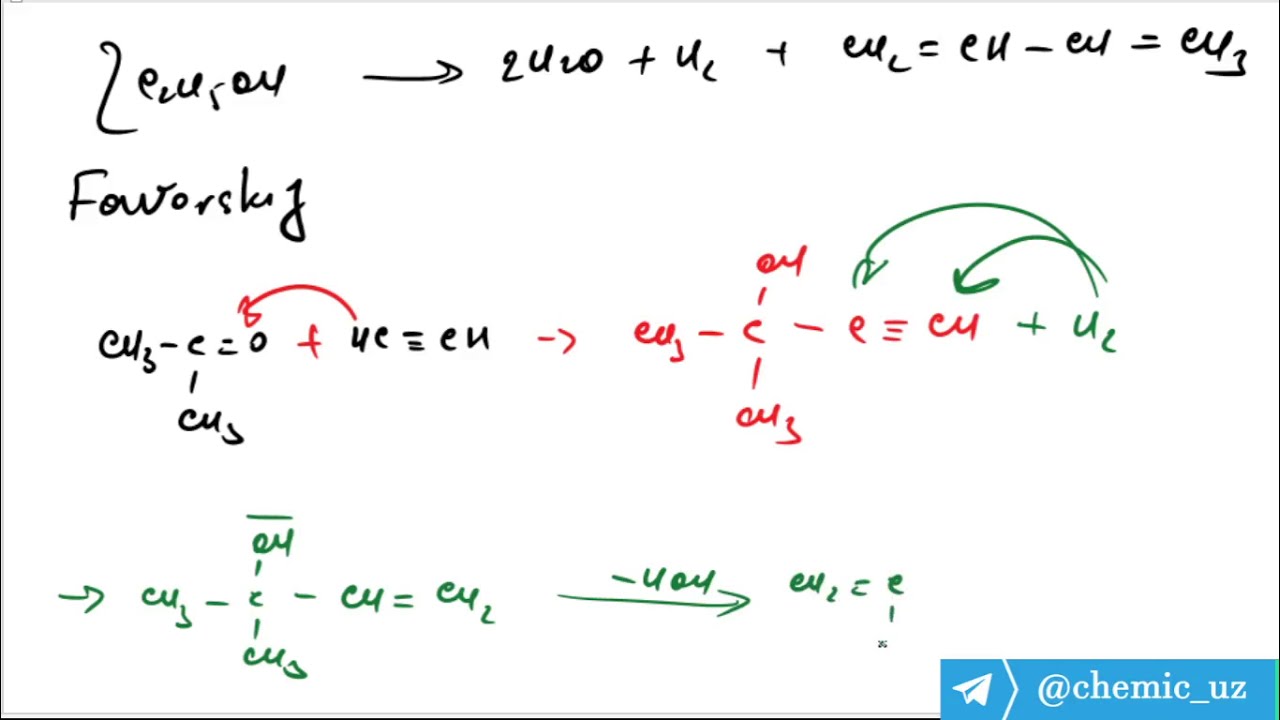 2C₂H₅OH → 2H₂O + H₂ + CH₂ = CH – CH = CH₃
Favorskij
OH
CH₃ – C = O + HC ≡ CH → CH₃ – C – C ≡ CH + H₂
CH₃ CH₃
OH
→ CH₃ – C – CH = CH₂ –HOH→ CH₂ = C
CH₃
@chemic_uz